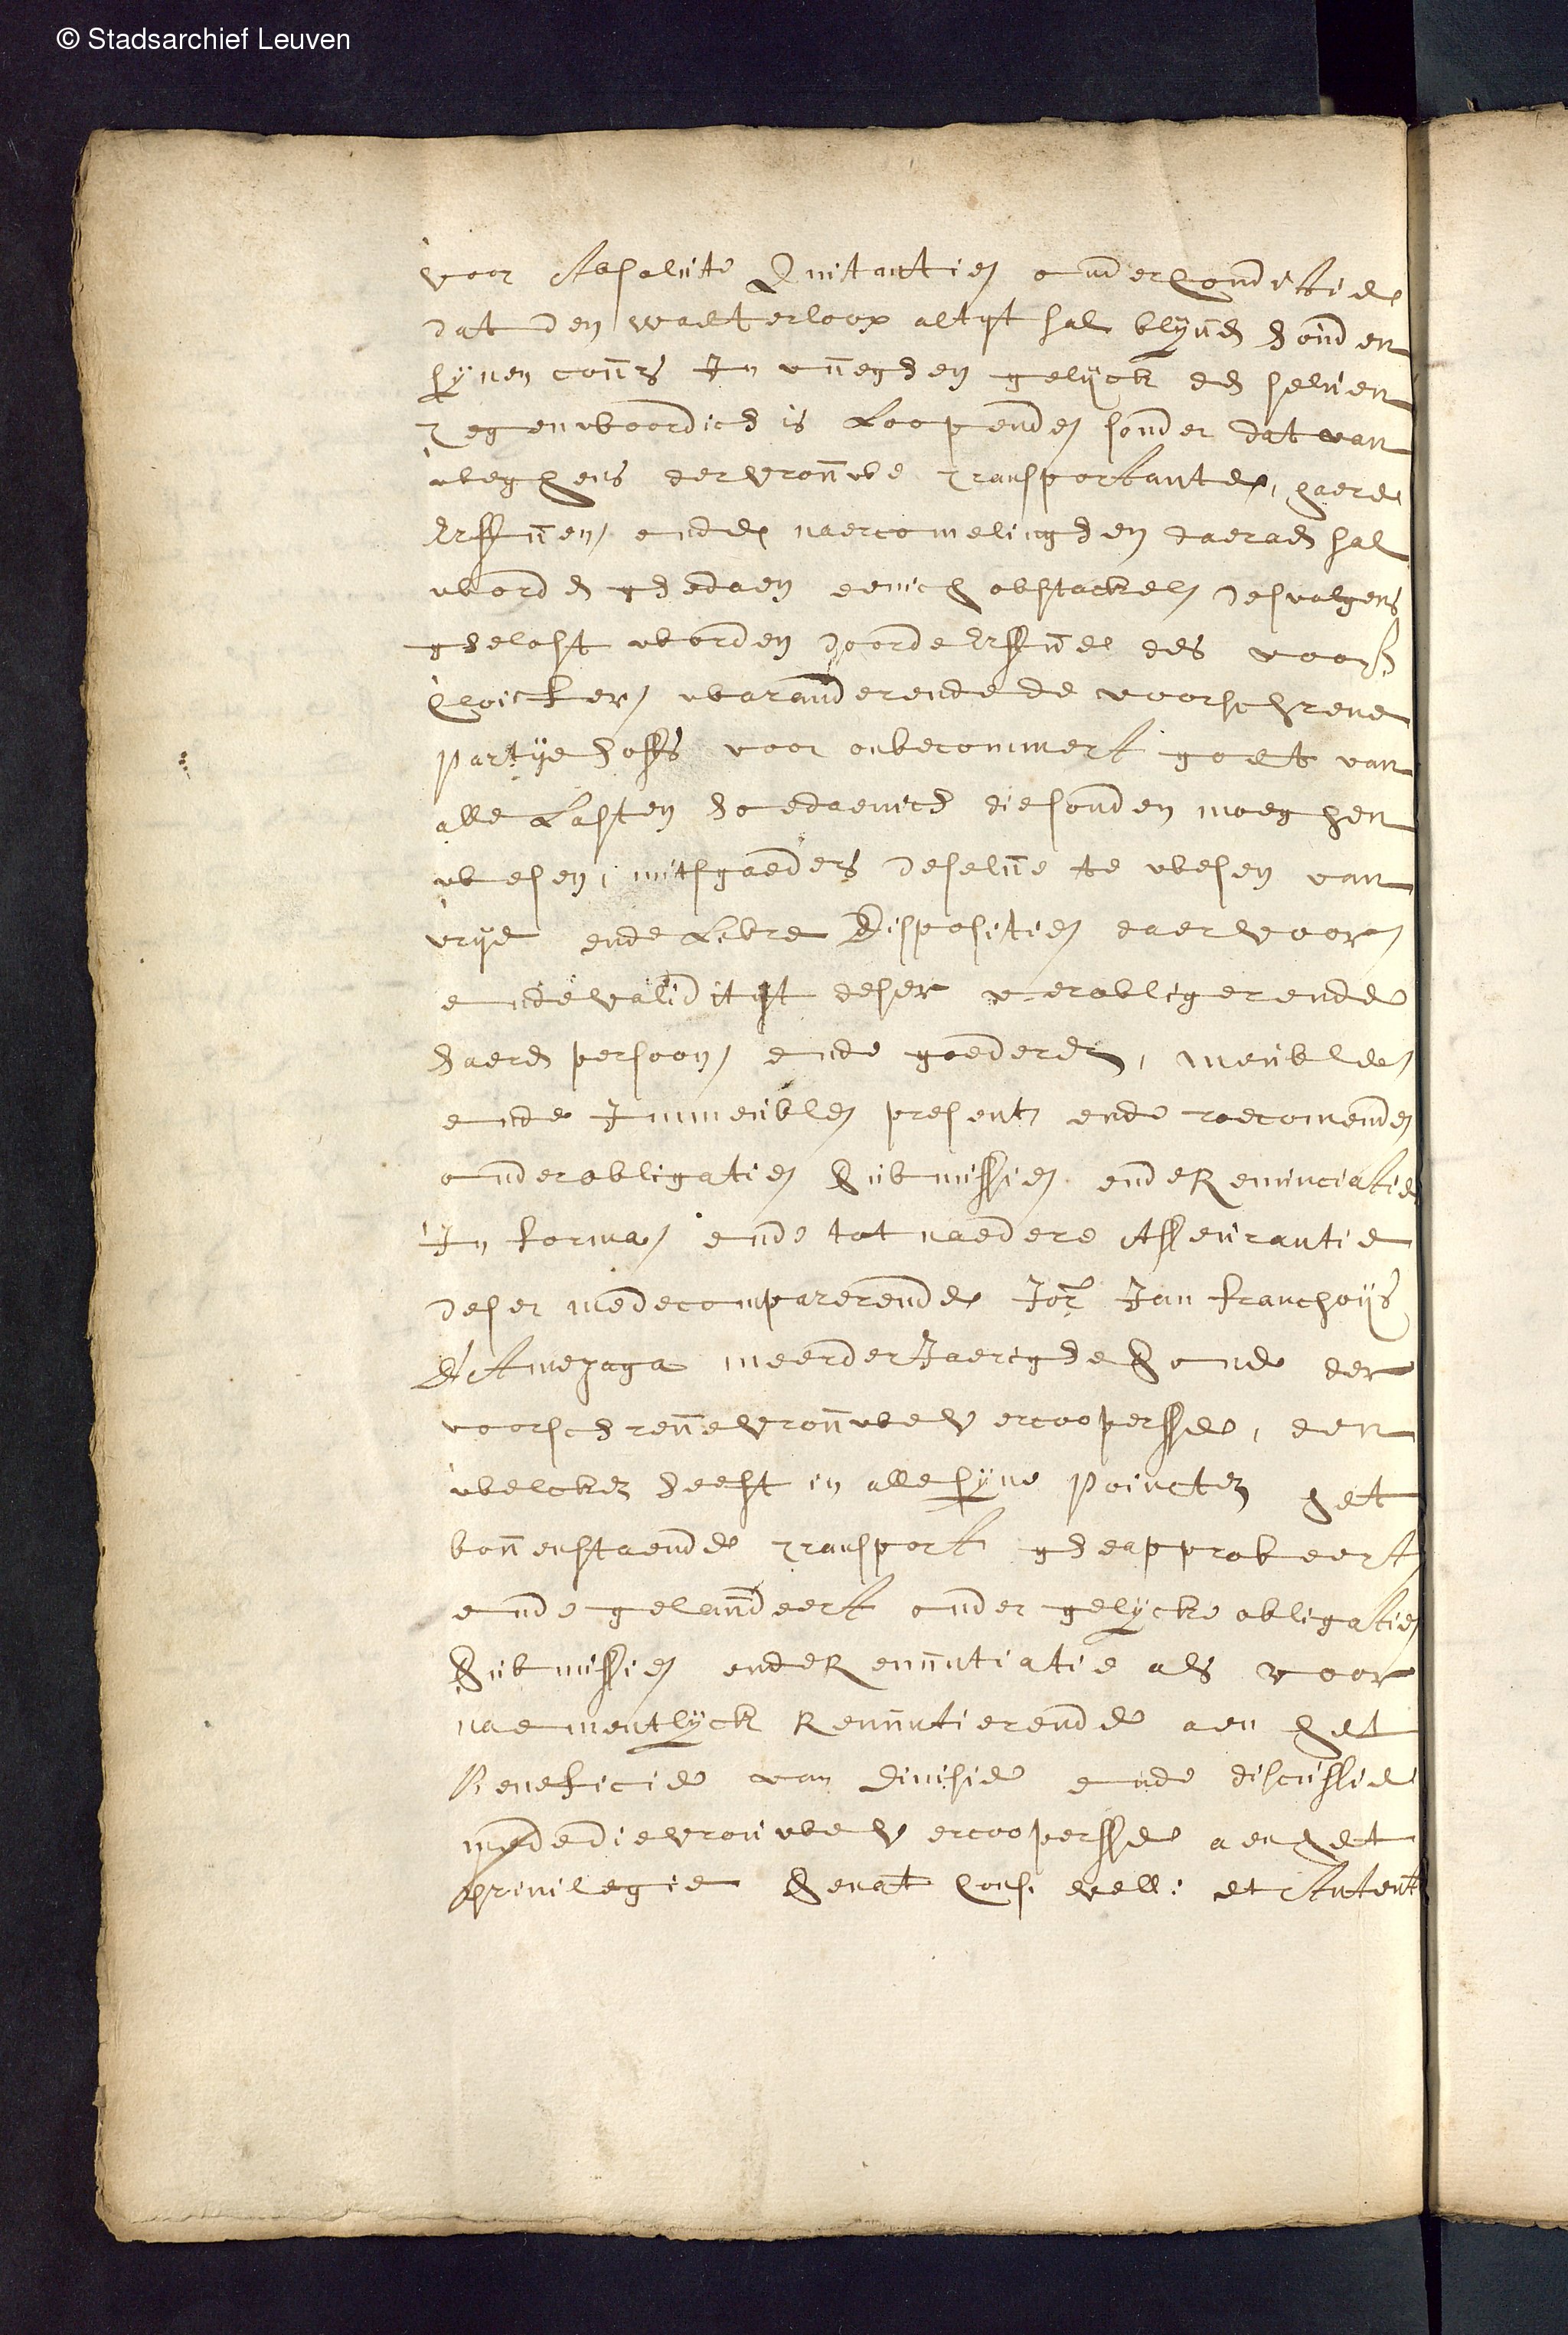 © Stadsarchief Leuven
voor Absolute Quitantie onder Conditie
dat den waeterloop altyt sal blyven houden
synen cours In vueghen gelyck den selven
tegenwoordich is Loopende sonder dat van
weghens der vrouwe transportante, haere
Erffven ende naercomelinghen daeraen sal
worden ghedaen eenich obstackel, desvolgens
ghelast worden door de Erffven des voors
Clercken waranderende de voorschreve
partye hoffs voor onbecommert goet van
alle Lasten hoedaenich die souden moeghen
wesen, mitsgaeders deselve te wesen van
vrye ende Libre Dispositie daer voor
ende validityt deser verobligerende
haeren persoon ende goederen, meuble
ende Immeuble present ende toecomende
onder obligatie Submissie ende Renunciatie
In forma ende tot naedere Asseurantie
deser medecomparerende Jor Jan Franchoys
D'Amezaga meerderJaerighe Sone der
voorschreve vrouwe Vercoopersse, den
welcken heeft in alle syne Poincten het
bovenstaende transport gheapprobeert
ende gelaudeert onder gelycke obligatie
Submissie ende Renuntiatie als voor
naementlyck Renuntierende aen het
Beneficie van Divisie ende discussie
mede die vrouwe Vercoopersse aen het
privilegie Senat Cons. vell: et Autent